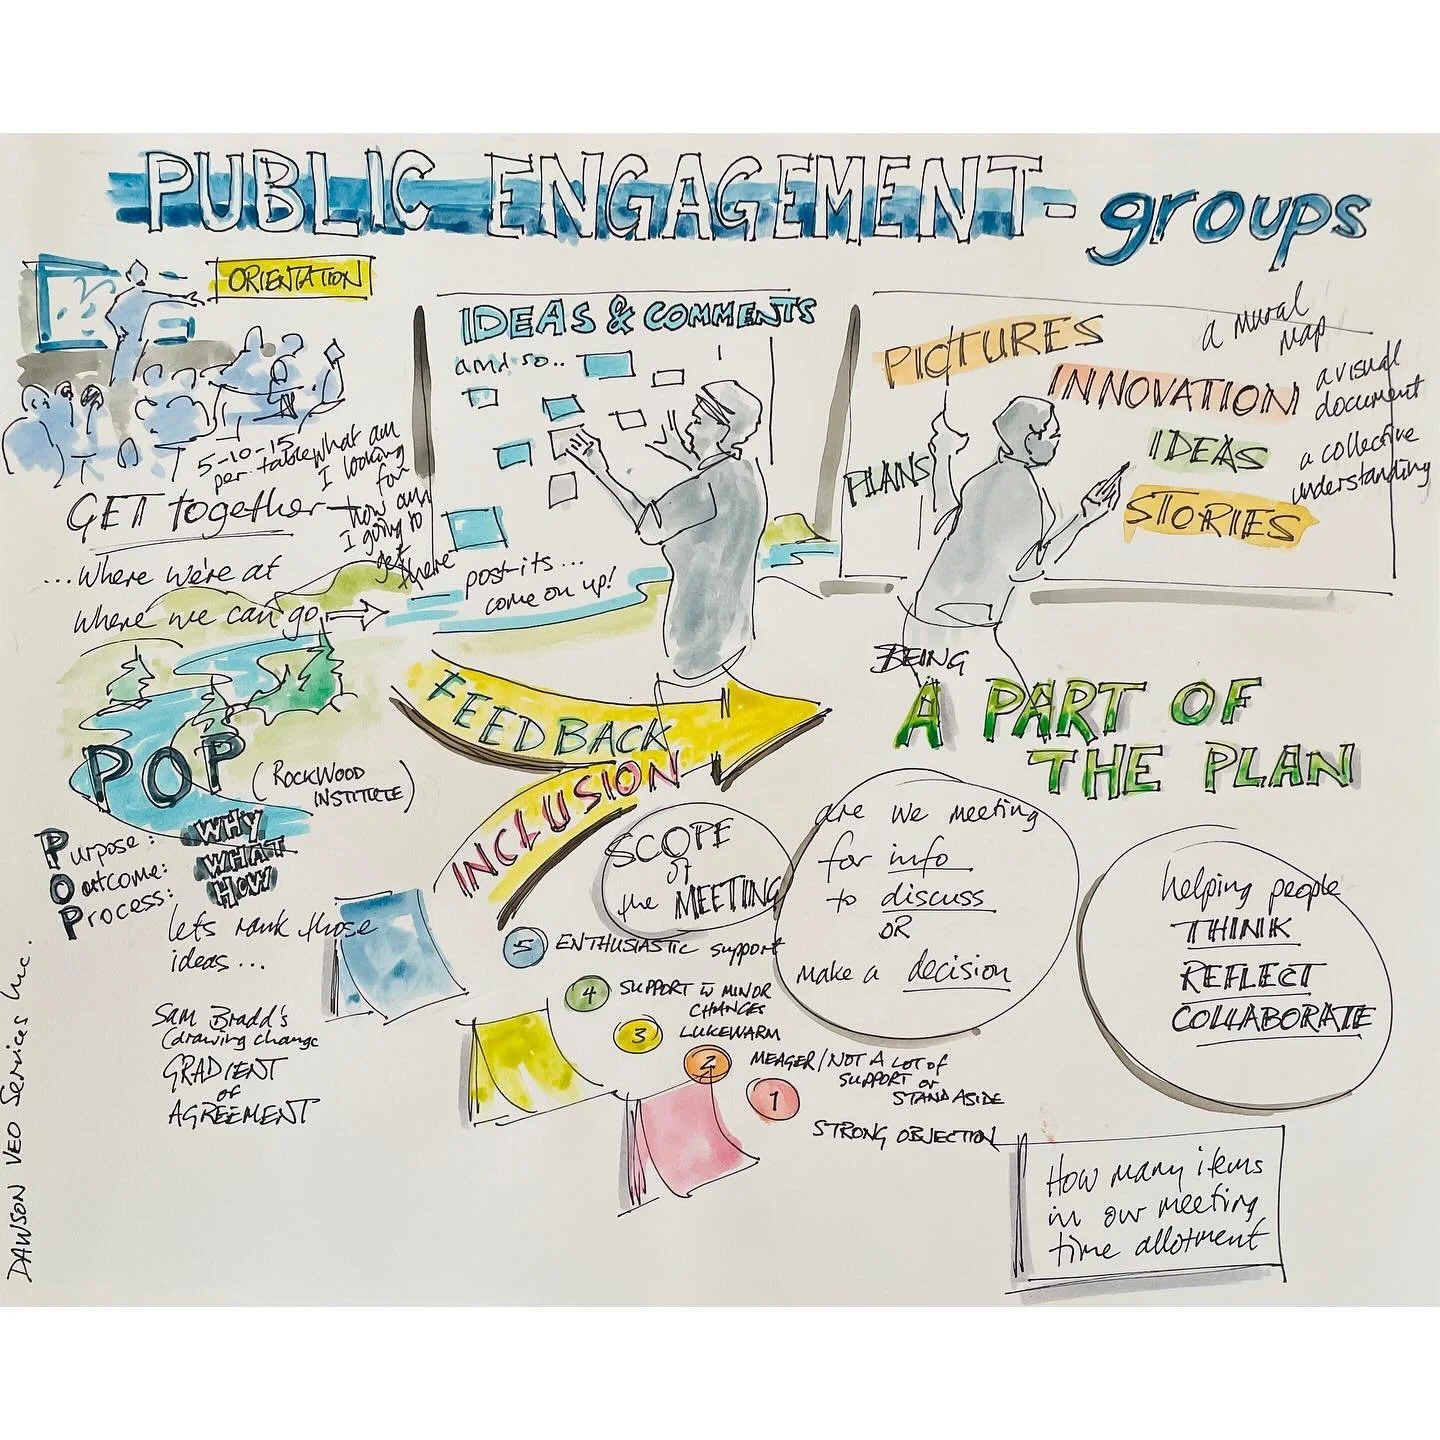 PUBLIC ENGAGEMENT - groups
ORIENTATION
5-10-15
per table
what am
I looking
for
how am
I going to
get
there
GET together
...where we're at
where we can go
IDEAS & COMMENTS
and so..
post-its...
come on up!
PICTURES
INNOVATION
PLANS
IDEAS
STORIES
a mural
map
a visual
document
a collective
understanding
BEING
A PART OF
THE PLAN
FEEDBACK
INCLUSION
POP
(ROCKWOOD
INSTITUTE)
Purpose: WHY
Outcome: WHAT
Process: HOW
lets rank those
ideas...
Sam Bradd's
(drawing change
GRADIENT
of
AGREEMENT
5 ENTHUSIASTIC support
4 SUPPORT w MINOR
CHANGES
3 LUKEWARM
2 MEAGER/NOT A LOT of
SUPPORT or
STAND ASIDE
1 STRONG OBJECTION
SCOPE
of
the MEETING
are we meeting
for info
to discuss
OR
make a decision
helping people
THINK
REFLECT
COLLABORATE
How many items
in our meeting
time allotment
DAWSON VEO Services Inc.